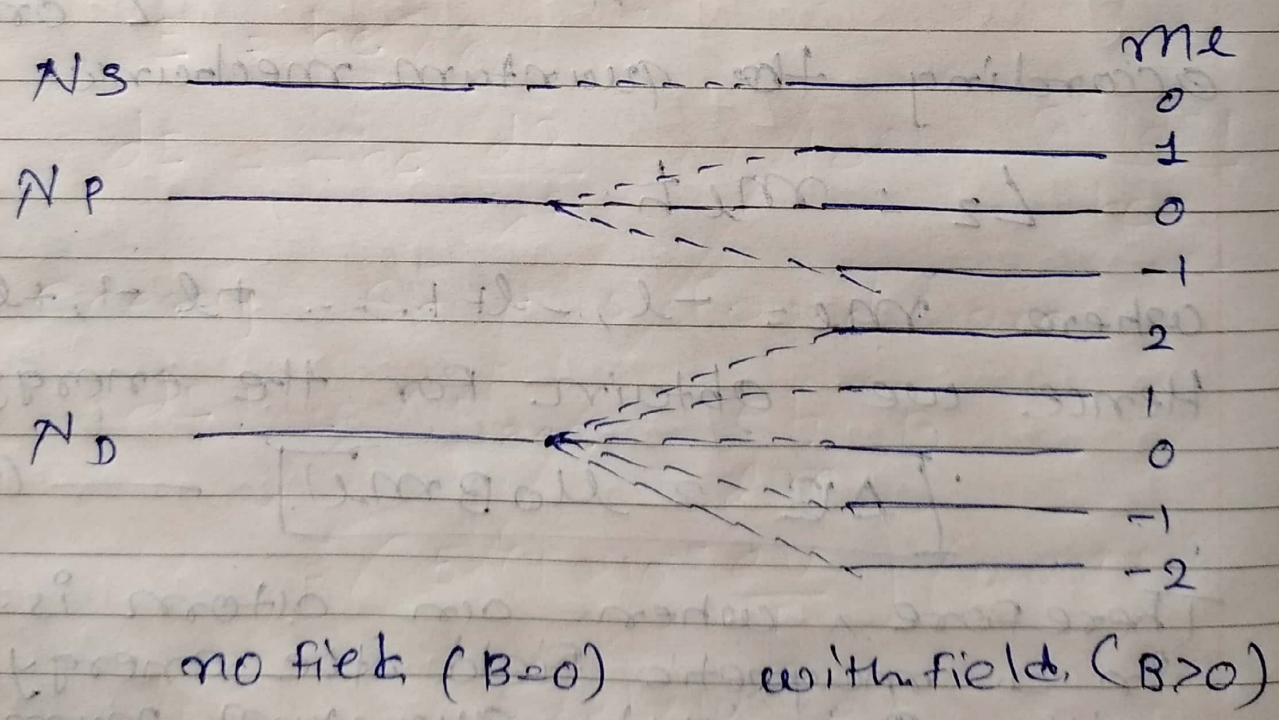 me
NS 0
1
NP 0
-1
2
1
ND 0
-1
-2
no field (B=0) with field. (B>0)